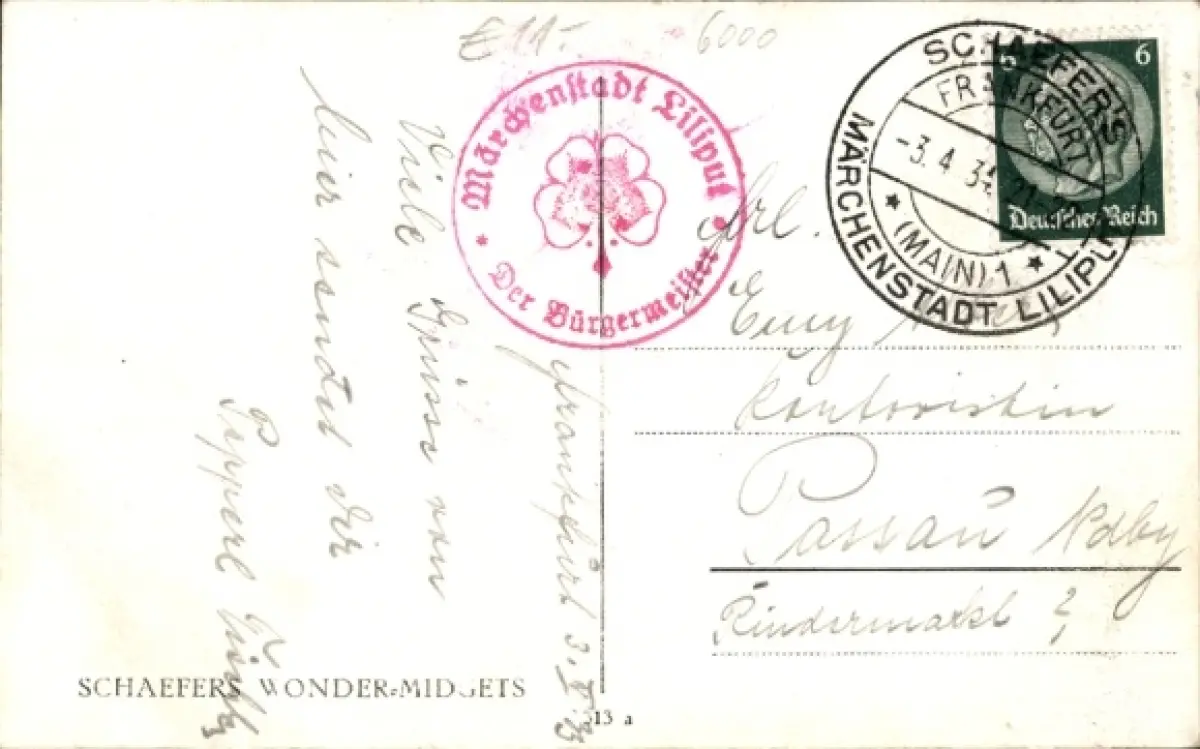 € 11.-
6000
Märchenstadt Liliput
Der Bürgermeister
SCHAEFER'S
MÄRCHENSTADT LILIPUT
FRANKFURT
-3.4.3
(MAIN) 1
6
Deutsches Reich
Frankfurt 3.
Viele Grüsse von
hier sendet dir
Pepperl
Frl.
Emy
Kontoristin
Passau Ndby
Rindermarkt
SCHAEFERS WONDER-MIDGETS
13 a